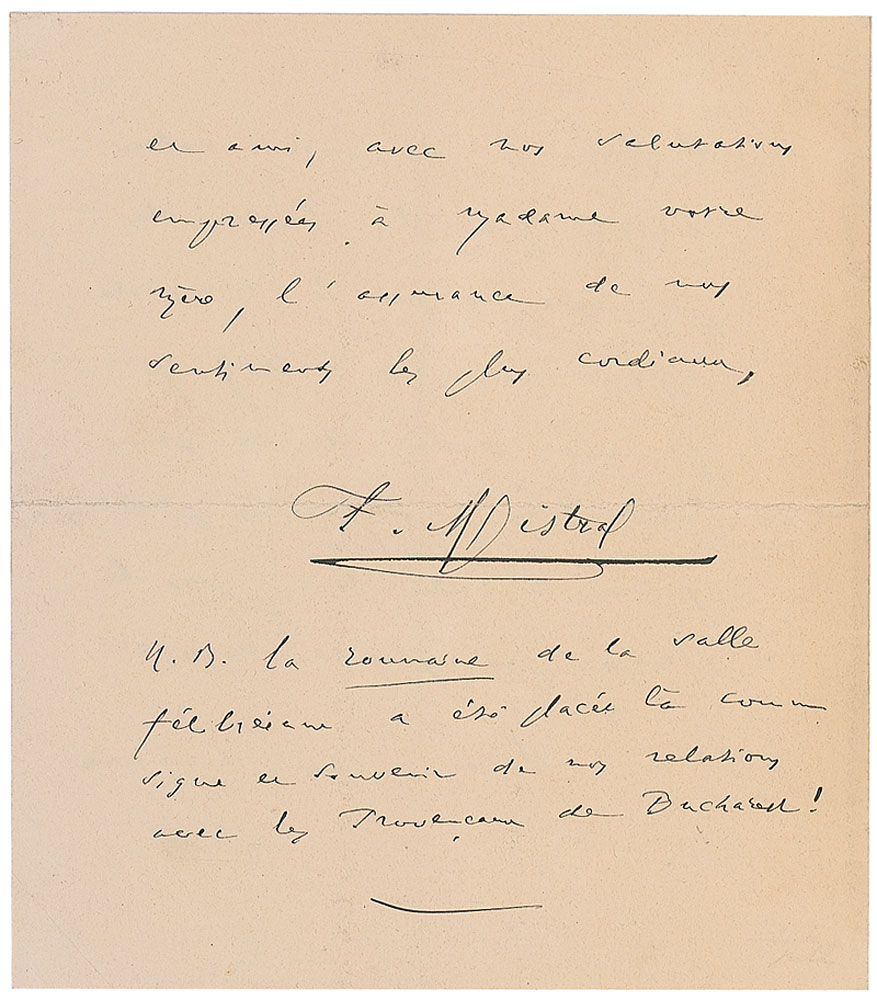 et ami, avec nos salutations
empressées à Madame votre
mère, l'assurance de nos
sentiments les plus cordiaux,
F. Mistral
N.B. la roumaine de la salle
félibréenne a été placée là comm
signe et souvenir de nos relations
avec les Provençaux de Bucharest!